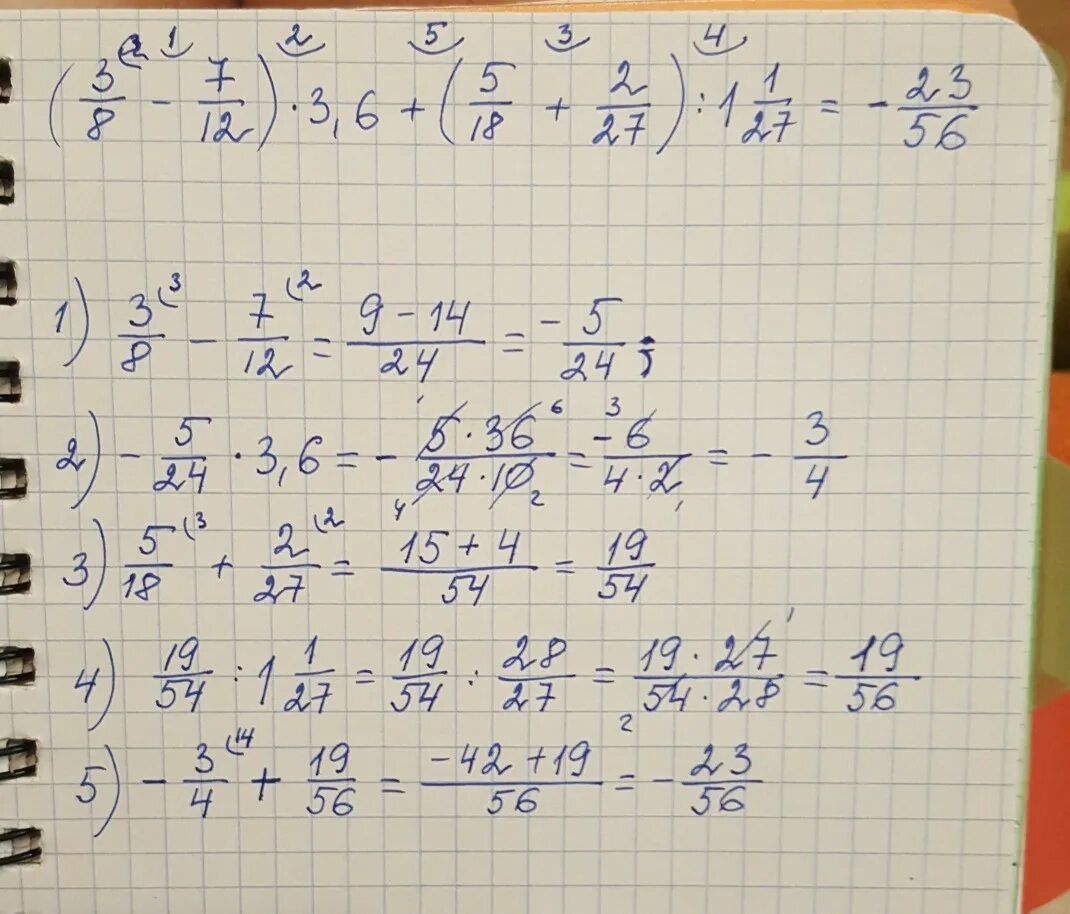 1 2 5 3 4
(3/8 - 7/12) · 3,6 + (5/18 + 2/27) : 1 1/27 = - 23/56
1) 3/8 (3 - 7/12 (2 = 9 - 14/24 = - 5/24 ;
2) - 5/24 · 3,6 = - 5 · 36 6/24 · 10 4 2 = 3 - 6/4 · 2 1 = - 3/4
3) 5/18 (3 + 2/27 (2 = 15 + 4/54 = 19/54
4) 19/54 : 1 1/27 = 19/54 : 28/27 = 19 · 27 1/54 · 28 2 = 19/56
5) - 3/4 (14 + 19/56 = -42 + 19/56 = - 23/56